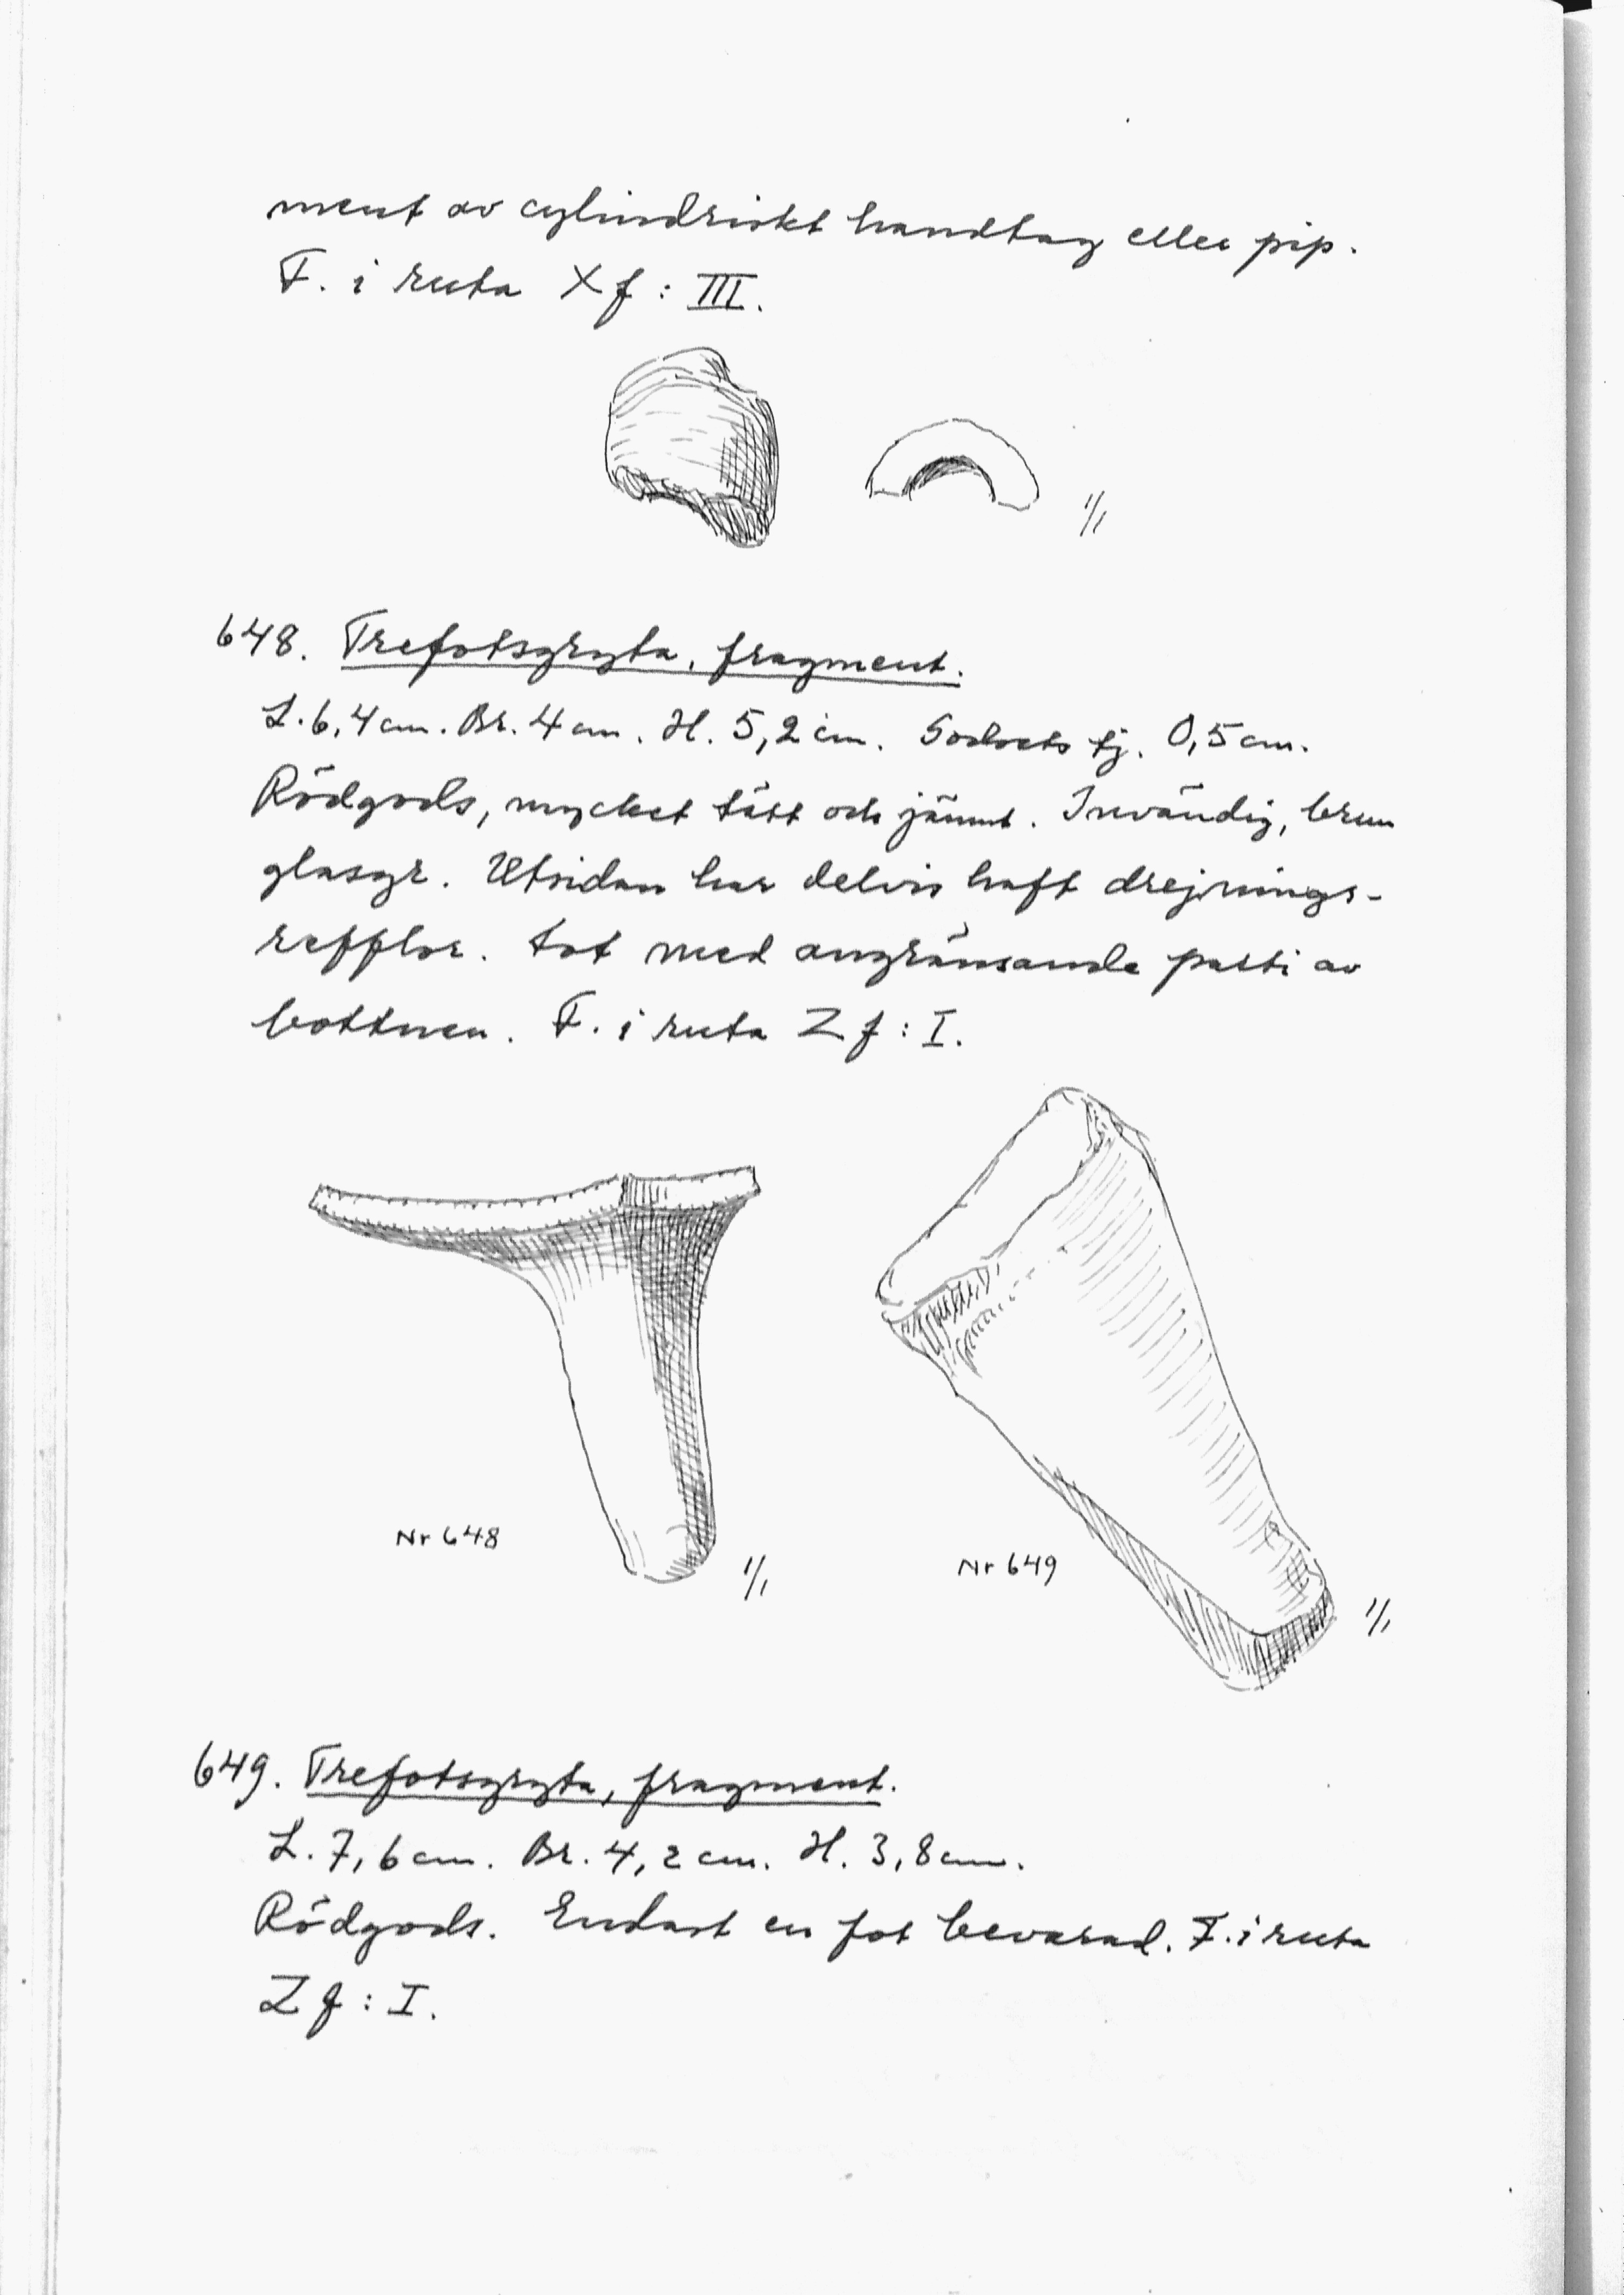 ment av cylindriskt handtag eller pip.
F. i ruta Xf: III.
1/1
648. Trefotsgryta, fragment.
L. 6,4 cm. Br. 4 cm. H. 5,2 cm. Godsets tj. 0,5 cm.
Rödgods, mycket tätt och jämnt. Invändig, brun
glasyr. Utsidan har delvis haft drejnings-
refflor. Fot med angränsande parti av
bottnen. F. i ruta Zf: I.
Nr 648
1/1
Nr 649
1/1
649. Trefotsgryta, fragment.
L. 7,6 cm. Br. 4,2 cm. H. 3,8 cm.
Rödgods. Endast en fot bevarad. F. i ruta
Zf: I.